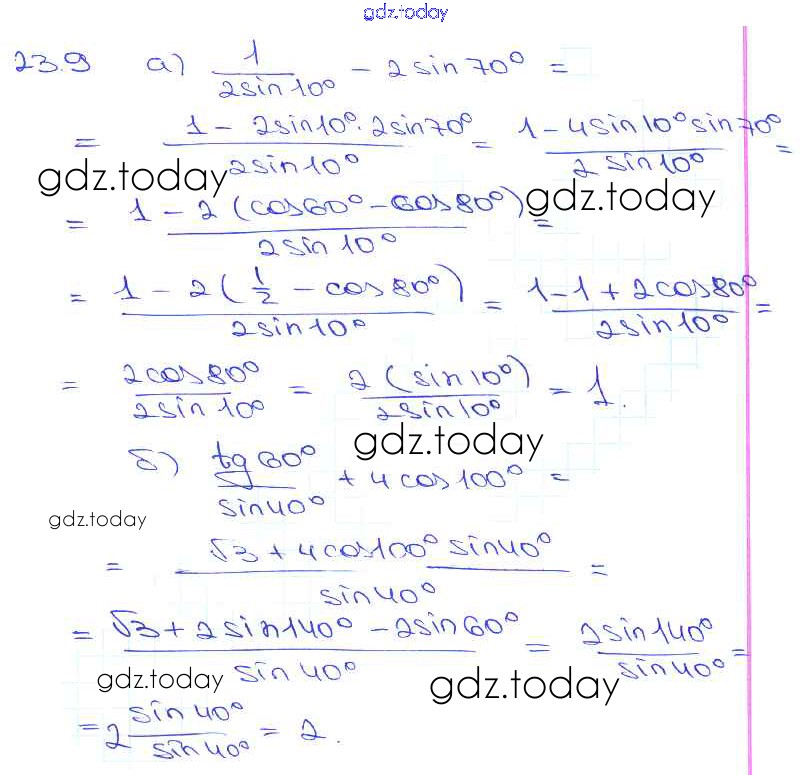 gdz.today
23.9 а) 1/(2sin10°) - 2sin70° =
= (1 - 2sin10°·2sin70°)/(2sin10°) = (1 - 4sin10°sin70°)/(2sin10°) =
gdz.today gdz.today
= (1 - 2(cos60° - cos80°))/(2sin10°) =
= (1 - 2(1/2 - cos80°))/(2sin10°) = (1 - 1 + 2cos80°)/(2sin10°) =
= 2cos80°/(2sin10°) = 2(sin10°)/(2sin10°) = 1.
gdz.today
б) tg60°/sin40° + 4cos100° =
gdz.today
= (√3 + 4cos100°sin40°)/sin40° =
= (√3 + 2sin140° - 2sin60°)/sin40° = 2sin140°/sin40° =
gdz.today gdz.today
= 2 sin40°/sin40° = 2.